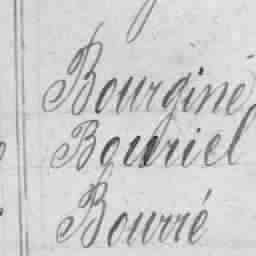 Bourginé
Bouriel
Bourré